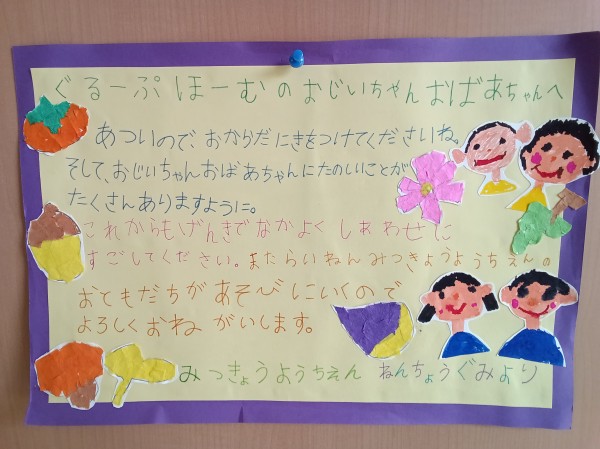 ぐるーぷほーむのおじいちゃんおばあちゃんへ
あついので、おからだにきをつけてくださいね。
そして、おじいちゃんおばあちゃんにたのしいことが
たくさんありますように。
これからもげんきでなかよくしあわせに
すごしてください。またらいねんみつきょうようちえんの
おともだちがあそびにいくので
よろしくおねがいします。
みつきょうようちえん ねんちょうぐみより